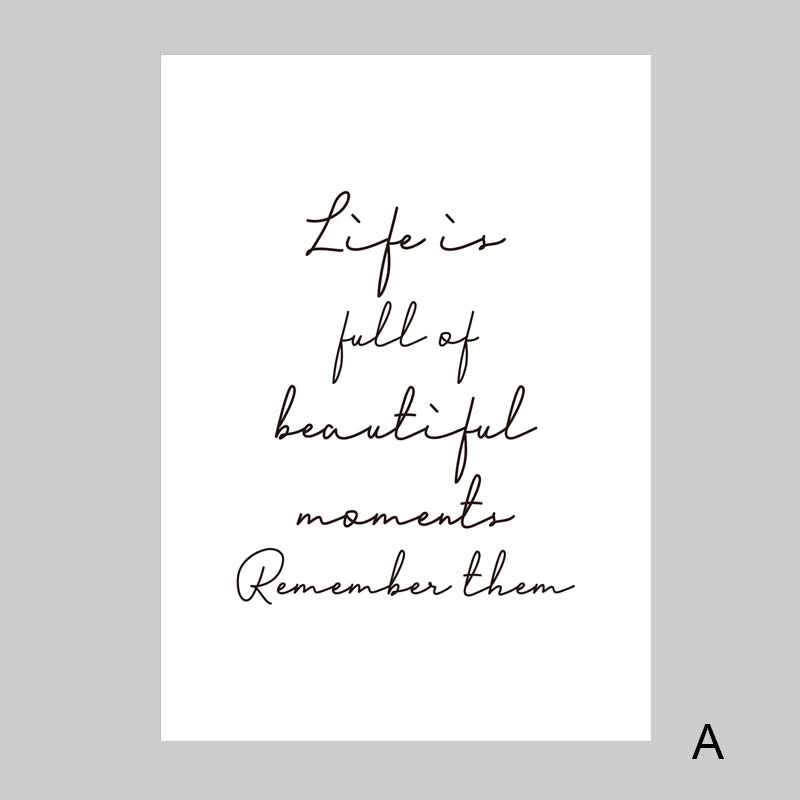 Life is
full of
beautiful
moments
Remember them
A